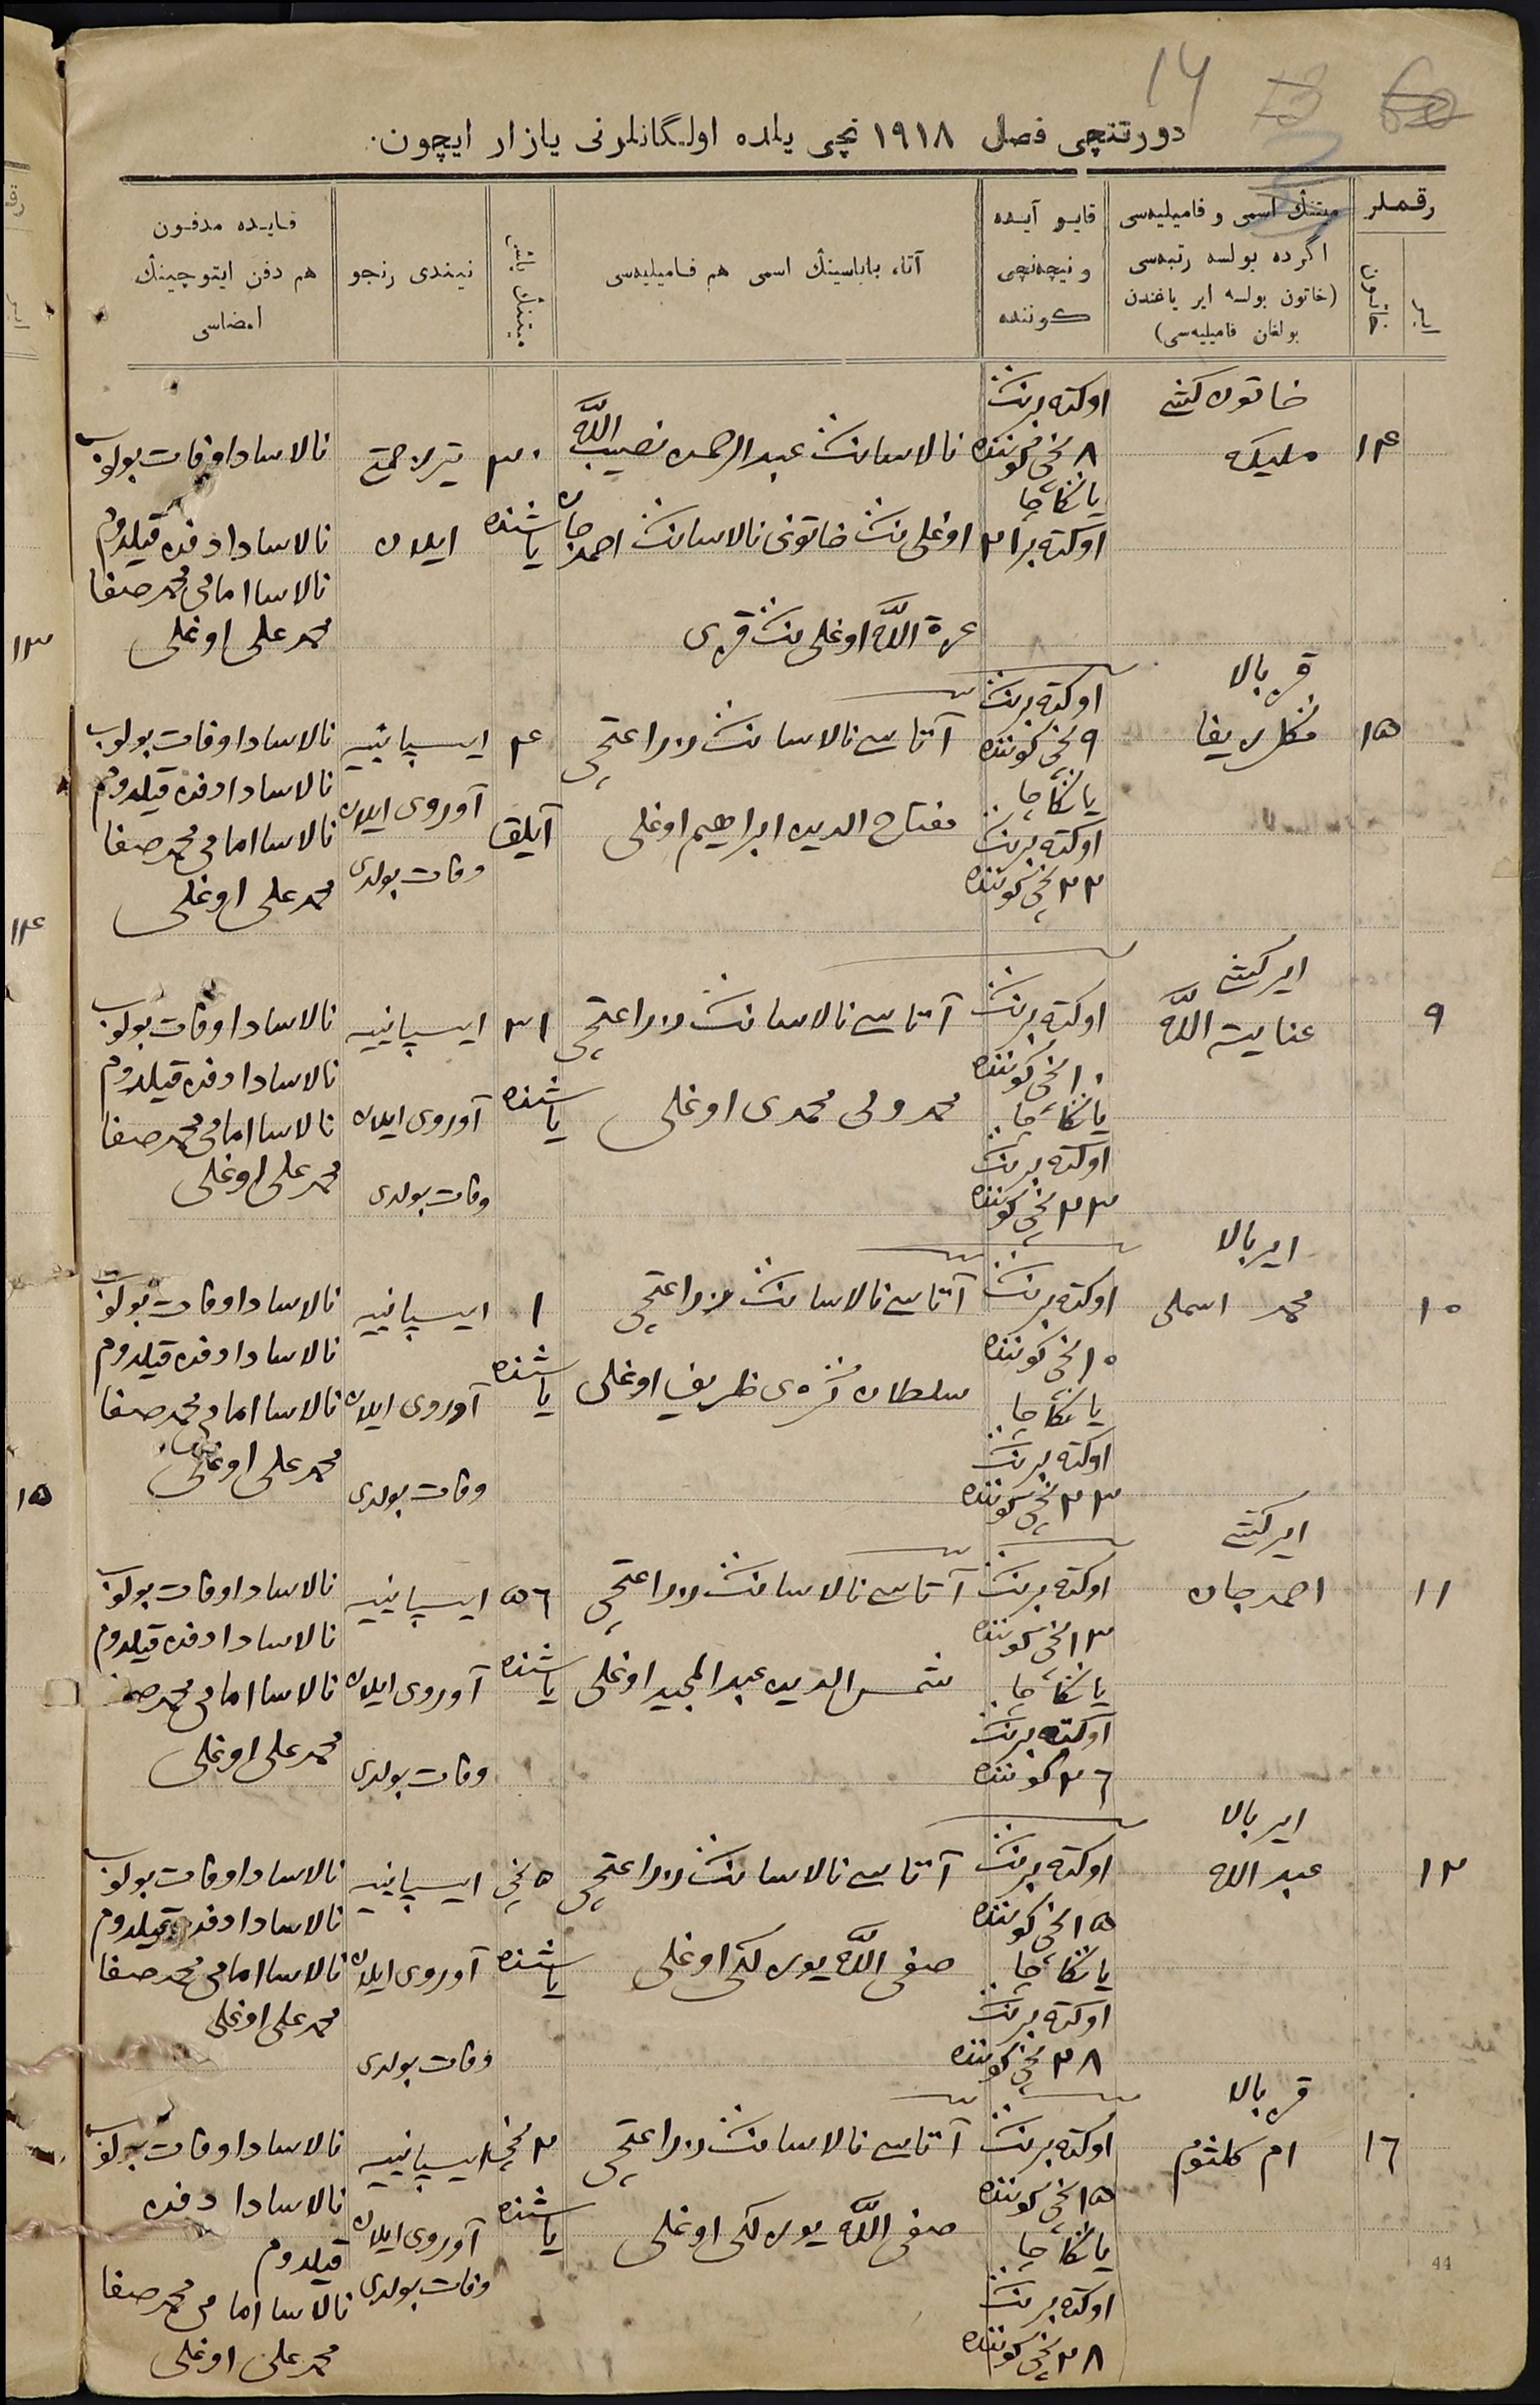 14 13 60
دورتنچی فصل ۱۹۱۸ نچی یلده اولگانلرنی یازار ایچون.
رقملر
ایر
خاتون
میتنڭ اسمی و فامیلیه‌سی
اگرده بولسه رتبه‌سی
(خاتون بولسه ایر یاغندن
بولغان فامیلیه‌سی)
قایو آیده
و نیچه‌نچی
كوننده
آتا، باباسینڭ اسمی هم فامیلیه‌سی
میتنڭ یاشی
نیندی رنجو
قایده مدفون
هم دفن ایتوچینڭ
امضاسی
۱۴
خاتون كشی
ملیكه
اوكته‌برنڭ
۸ نچی كوننده
یانگاچا
اوكته‌بر ۲۱
نالاسانڭ عبدالرحمن نصیب الله
اوغلی ننڭ خاتونی نالاسانڭ احمدجان
عزة الله اوغلی ننڭ قزی
۳۰
یاشنده
ایلان
نالاسادا وفات بولوب
نالاسادا دفن قیلدوم
نالاسا امامی محمدصفا
محمدعلی اوغلی
۱۵
قز بالا
اوكته‌برنڭ
۹ نچی كوننده
یانگاچا
اوكته‌برنڭ
۲۲ نچی كوننده
آتاسی نالاسانڭ زراعتچی
مفتاح الدین ابراهیم اوغلی
۴
آیلق
ایسپانیيه
آوروی ایلان
وفات بولدی
نالاسادا وفات بولوب
نالاسادا دفن قیلدوم
نالاسا امامی محمدصفا
محمدعلی اوغلی
۹
ایر كشی
عنایت الله
اوكته‌برنڭ
۱۰ نچی كوننده
یانگاچا
اوكته‌برنڭ
۲۳ نچی كوننده
آتاسی نالاسانڭ زراعتچی
محمدولی محمدی اوغلی
۳۱
یاشنده
ایسپانیيه
آوروی ایلان
وفات بولدی
نالاسادا وفات بولوب
نالاسادا دفن قیلدوم
نالاسا امامی محمدصفا
محمدعلی اوغلی
۱۰
ایر بالا
محمد اسملی
اوكته‌برنڭ
۱۰ نچی كوننده
یانگاچا
اوكته‌برنڭ
۲۳ نچی كوننده
آتاسی نالاسانڭ زراعتچی
سلطان ظریف اوغلی
۱
یاشنده
ایسپانیيه
آوروی ایلان
وفات بولدی
نالاسادا وفات بولوب
نالاسادا دفن قیلدوم
نالاسا امامی محمدصفا
محمدعلی اوغلی
۱۱
ایر كشی
احمدجان
اوكته‌برنڭ
۱۳ نچی كوننده
یانگاچا
اوكته‌برنڭ
۲۶ كوننده
آتاسی نالاسانڭ زراعتچی
شمس الدین عبدالمجید اوغلی
۵۶
یاشنده
ایسپانیيه
آوروی ایلان
وفات بولدی
نالاسادا وفات بولوب
نالاسادا دفن قیلدوم
نالاسا امامی محمدصفا
محمدعلی اوغلی
۱۲
ایر بالا
عبدالله
اوكته‌برنڭ
۱۵ نچی كوننده
یانگاچا
اوكته‌برنڭ
۲۸ نچی كوننده
آتاسی نالاسانڭ زراعتچی
صفی الله اوغلی
۵ نچی
یاشنده
ایسپانیيه
آوروی ایلان
وفات بولدی
نالاسادا وفات بولوب
نالاسادا دفن قیلدوم
نالاسا امامی محمدصفا
محمدعلی اوغلی
۱۶
قز بالا
ام كلثوم
اوكته‌برنڭ
۱۵ نچی كوننده
یانگاچا
اوكته‌برنڭ
۲۸ نچی كوننده
آتاسی نالاسانڭ زراعتچی
صفی الله اوغلی
۲ نچی
یاشنده
ایسپانیيه
آوروی ایلان
وفات بولدی
نالاسادا وفات بولوب
نالاسادا دفن
قیلدوم
نالاسا امامی محمدصفا
محمدعلی اوغلی
۱۳
۱۴
۱۵
44